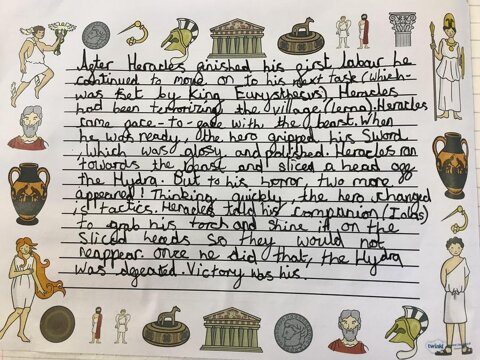 After Heracles finished his first labour he
continued to move on to his next task (Which
was set by King Eurystheus). Heracles
had been terrorizing the village (Lerna). Heracles
came face-to-face with the beast. When
he was ready, the hero gripped his sword
, which was glossy and polished. Heracles ran
towards the beast and sliced a head off
the Hydra. But to his horror, two more
appeared! Thinking quickly the hero changed
is tactics. Heracles told his companion (Iolas)
to grab his torch and shine it on the
sliced heads so they would not
reappear. Once he did that, the Hydra
was defeated. Victory was his.
twinkl